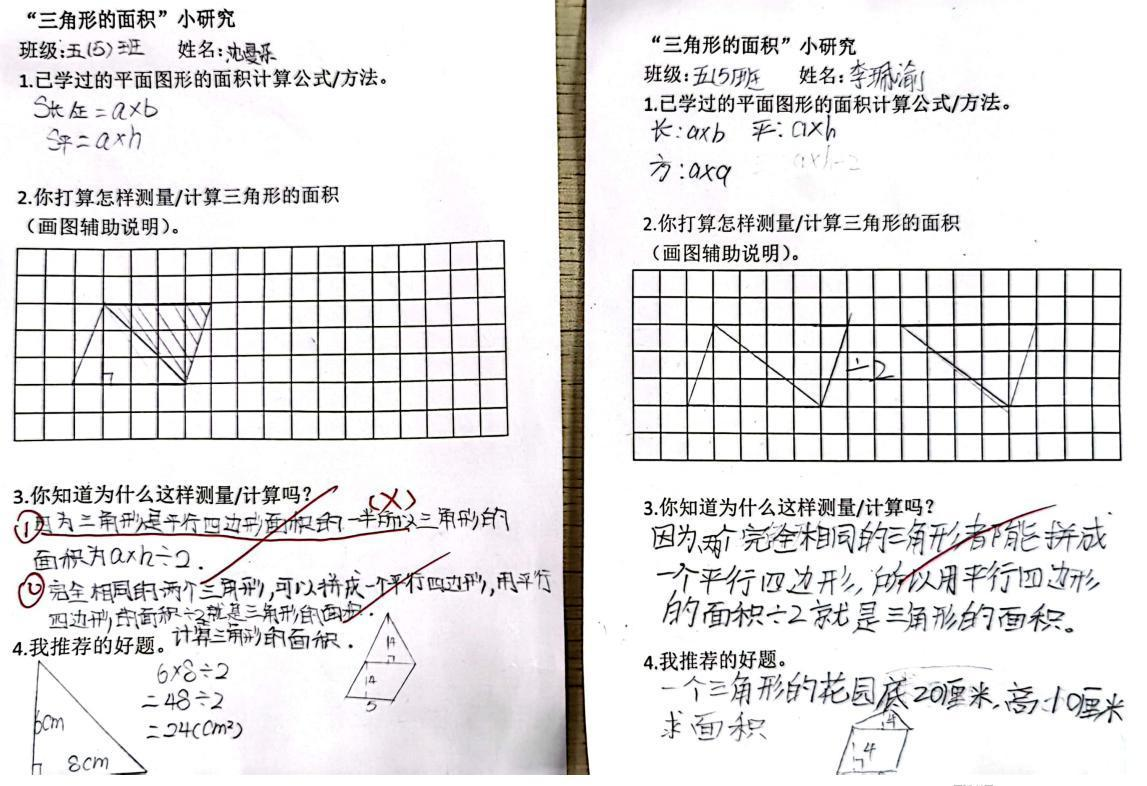 “三角形的面积”小研究
班级:五(5)班 姓名:沈曼乐
1.已学过的平面图形的面积计算公式/方法。
S长方=a×b
S平=a×h
2.你打算怎样测量/计算三角形的面积
(画图辅助说明)。
3.你知道为什么这样测量/计算吗?
(×)
①因为三角形是平行四边形面积的一半所以三角形的
面积为a×h÷2.
②完全相同的两个三角形,可以拼成一个平行四边形,用平行
四边形的面积÷2就是三角形的面积.
4.我推荐的好题。计算三角形的面积.
6×8÷2
=48÷2
=24(cm²)
6cm
8cm
4
5
“三角形的面积”小研究
班级:五(5)班 姓名:李珮渝
1.已学过的平面图形的面积计算公式/方法。
长:a×b 平:a×h
方:a×a a×h÷2
2.你打算怎样测量/计算三角形的面积
(画图辅助说明)。
÷2
3.你知道为什么这样测量/计算吗?
因为,两个完全相同的三角形都能拼成
一个平行四边形,所以用平行四边形
的面积÷2就是三角形的面积。
4.我推荐的好题。
一个三角形的花园底20厘米,高10厘米
求面积
4
4